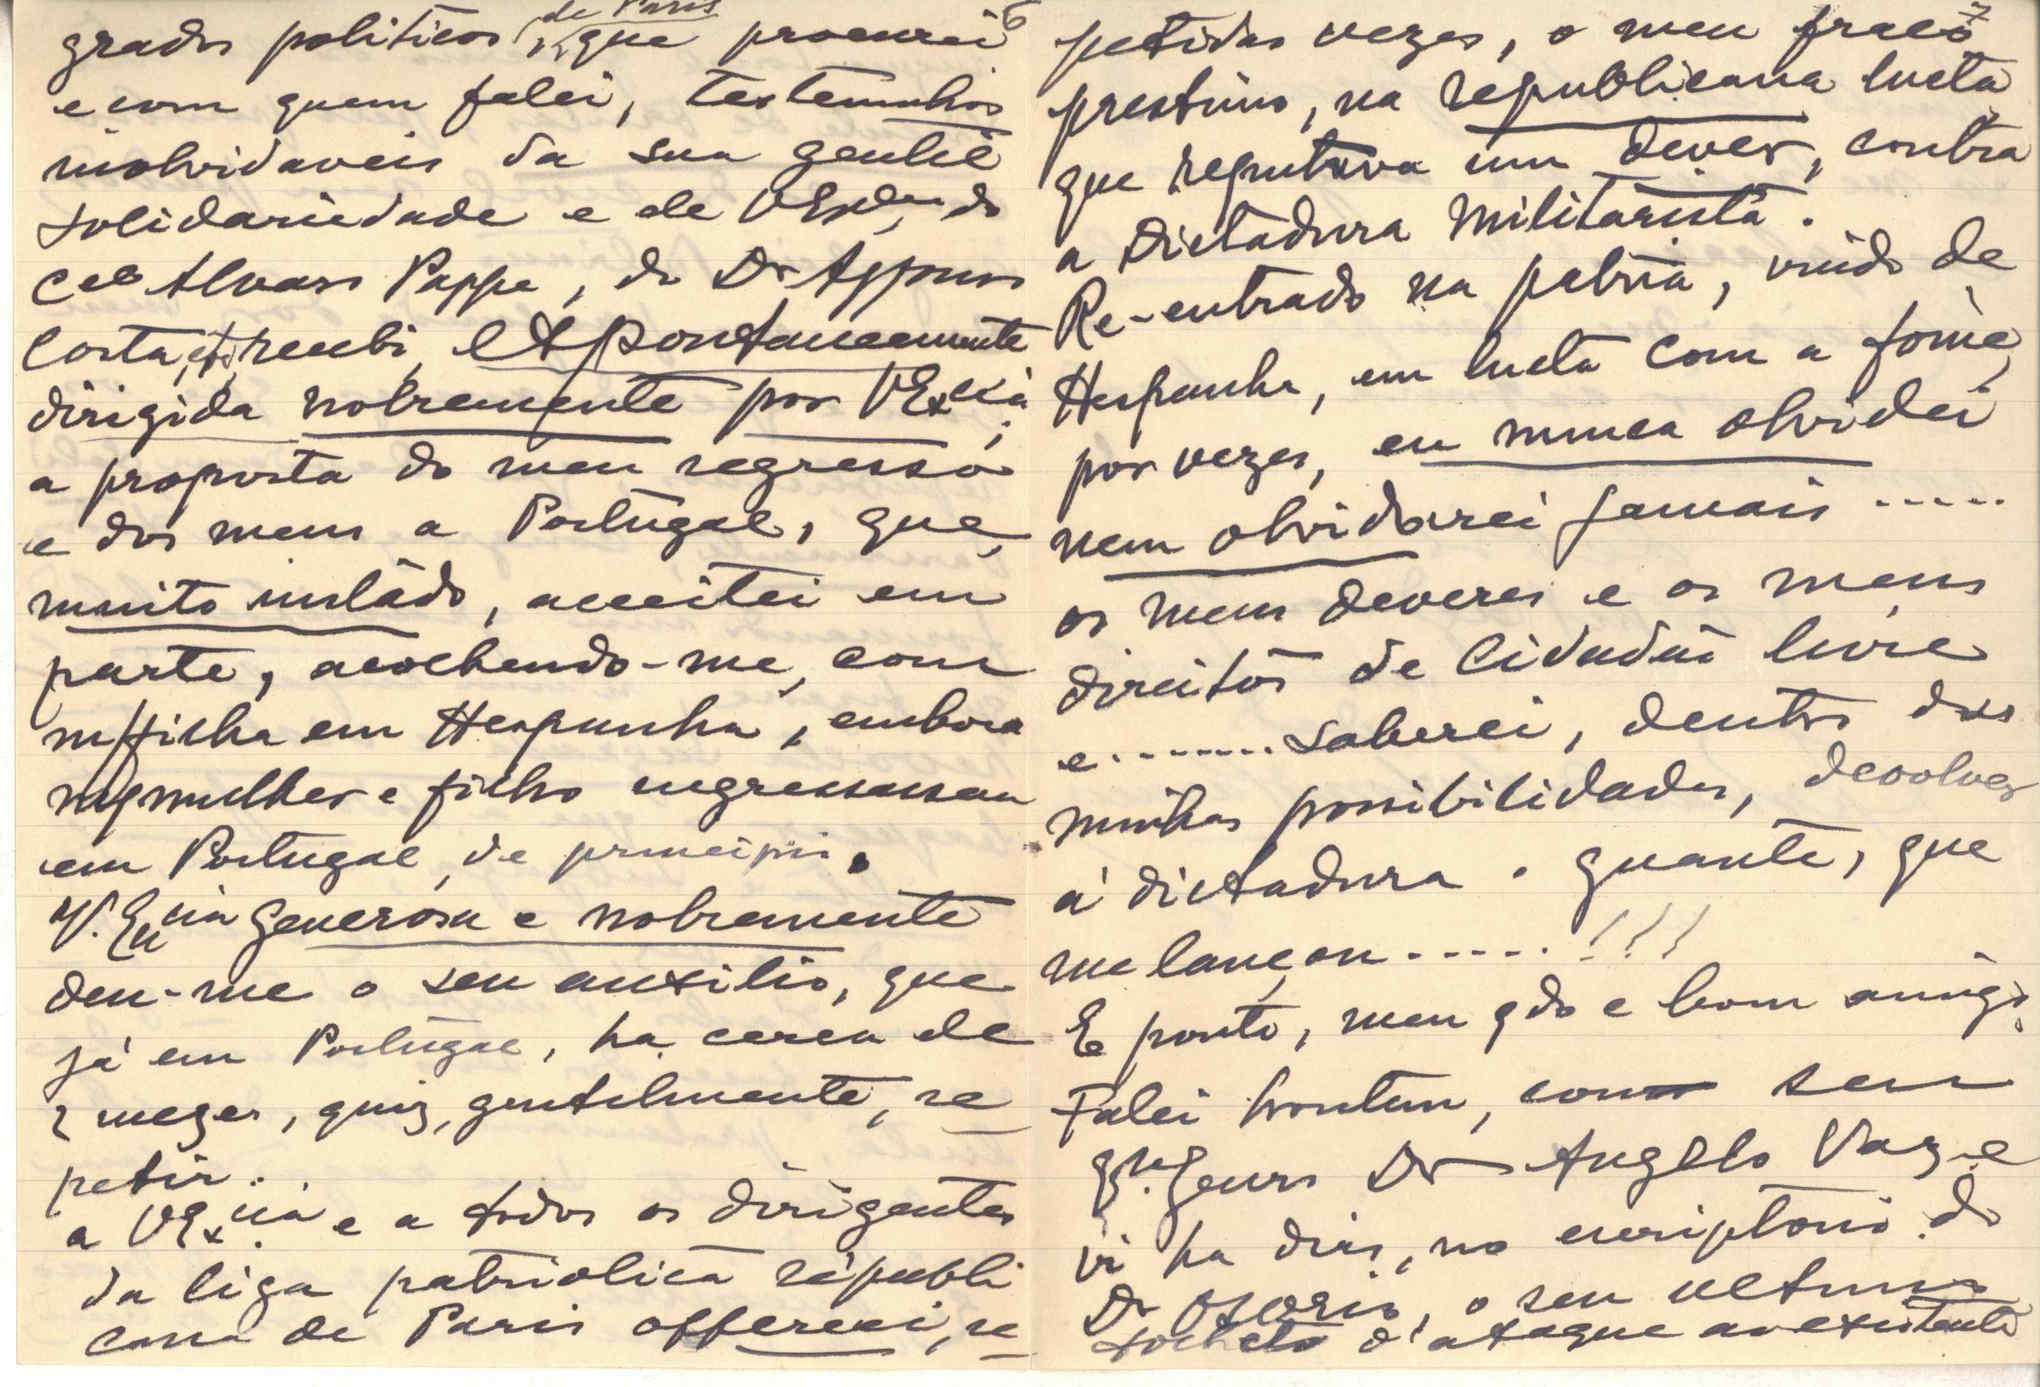 6
de Paris
grados politicos que procurei
e com quem falei, testemunhos
inolvidaveis da sua gentil
solidariedade e de VExcia, do
Cel Alvaro Pappe, do Dr Affonso
Costa, etc, recebi, expontaneamente
dirigida nobremente por VExcia,
a proposta do meu regresso
e dos meus a Portugal, que,
muito instado, acceitei em
parte, acolhendo-me, com
m/filha em Hespanha, embora
m/mulher e filho regressassem
em Portugal, de principio.
V. Excia generosa e nobremente
deu-me o seu auxilio, que
já em Portugal, ha cerca de
2 mezes, quiz, gentilmente, re
petir.
a VExcia e a todos os dirigentes
da liga patriotica republi
cana de Paris offereci, re
7
petidas vezes, o meu fraco
prestimo, na republicana lucta
que reputava um dever, contra
a Dictadura Militarista.
Re-entrado na patria, vindo de
Hespanha, em lucta com a fome,
por vezes, eu nunca olvidei
nem olvidarei jamais .....
os meus deveres e os meus
direitos de Cidadão livre
e ........ saberei, dentro das
minhas possibilidades, devolver
á dictadura o guante, que
me lançou ..... !!!
E ponto, meu qdo e bom amigo.
Falei hontem, com seu
Genro Dr Angelo Vaz e
vi ha dias, no escriptorio do
Dr Osorio, o seu ultimo
folheto d'ataque ao existente